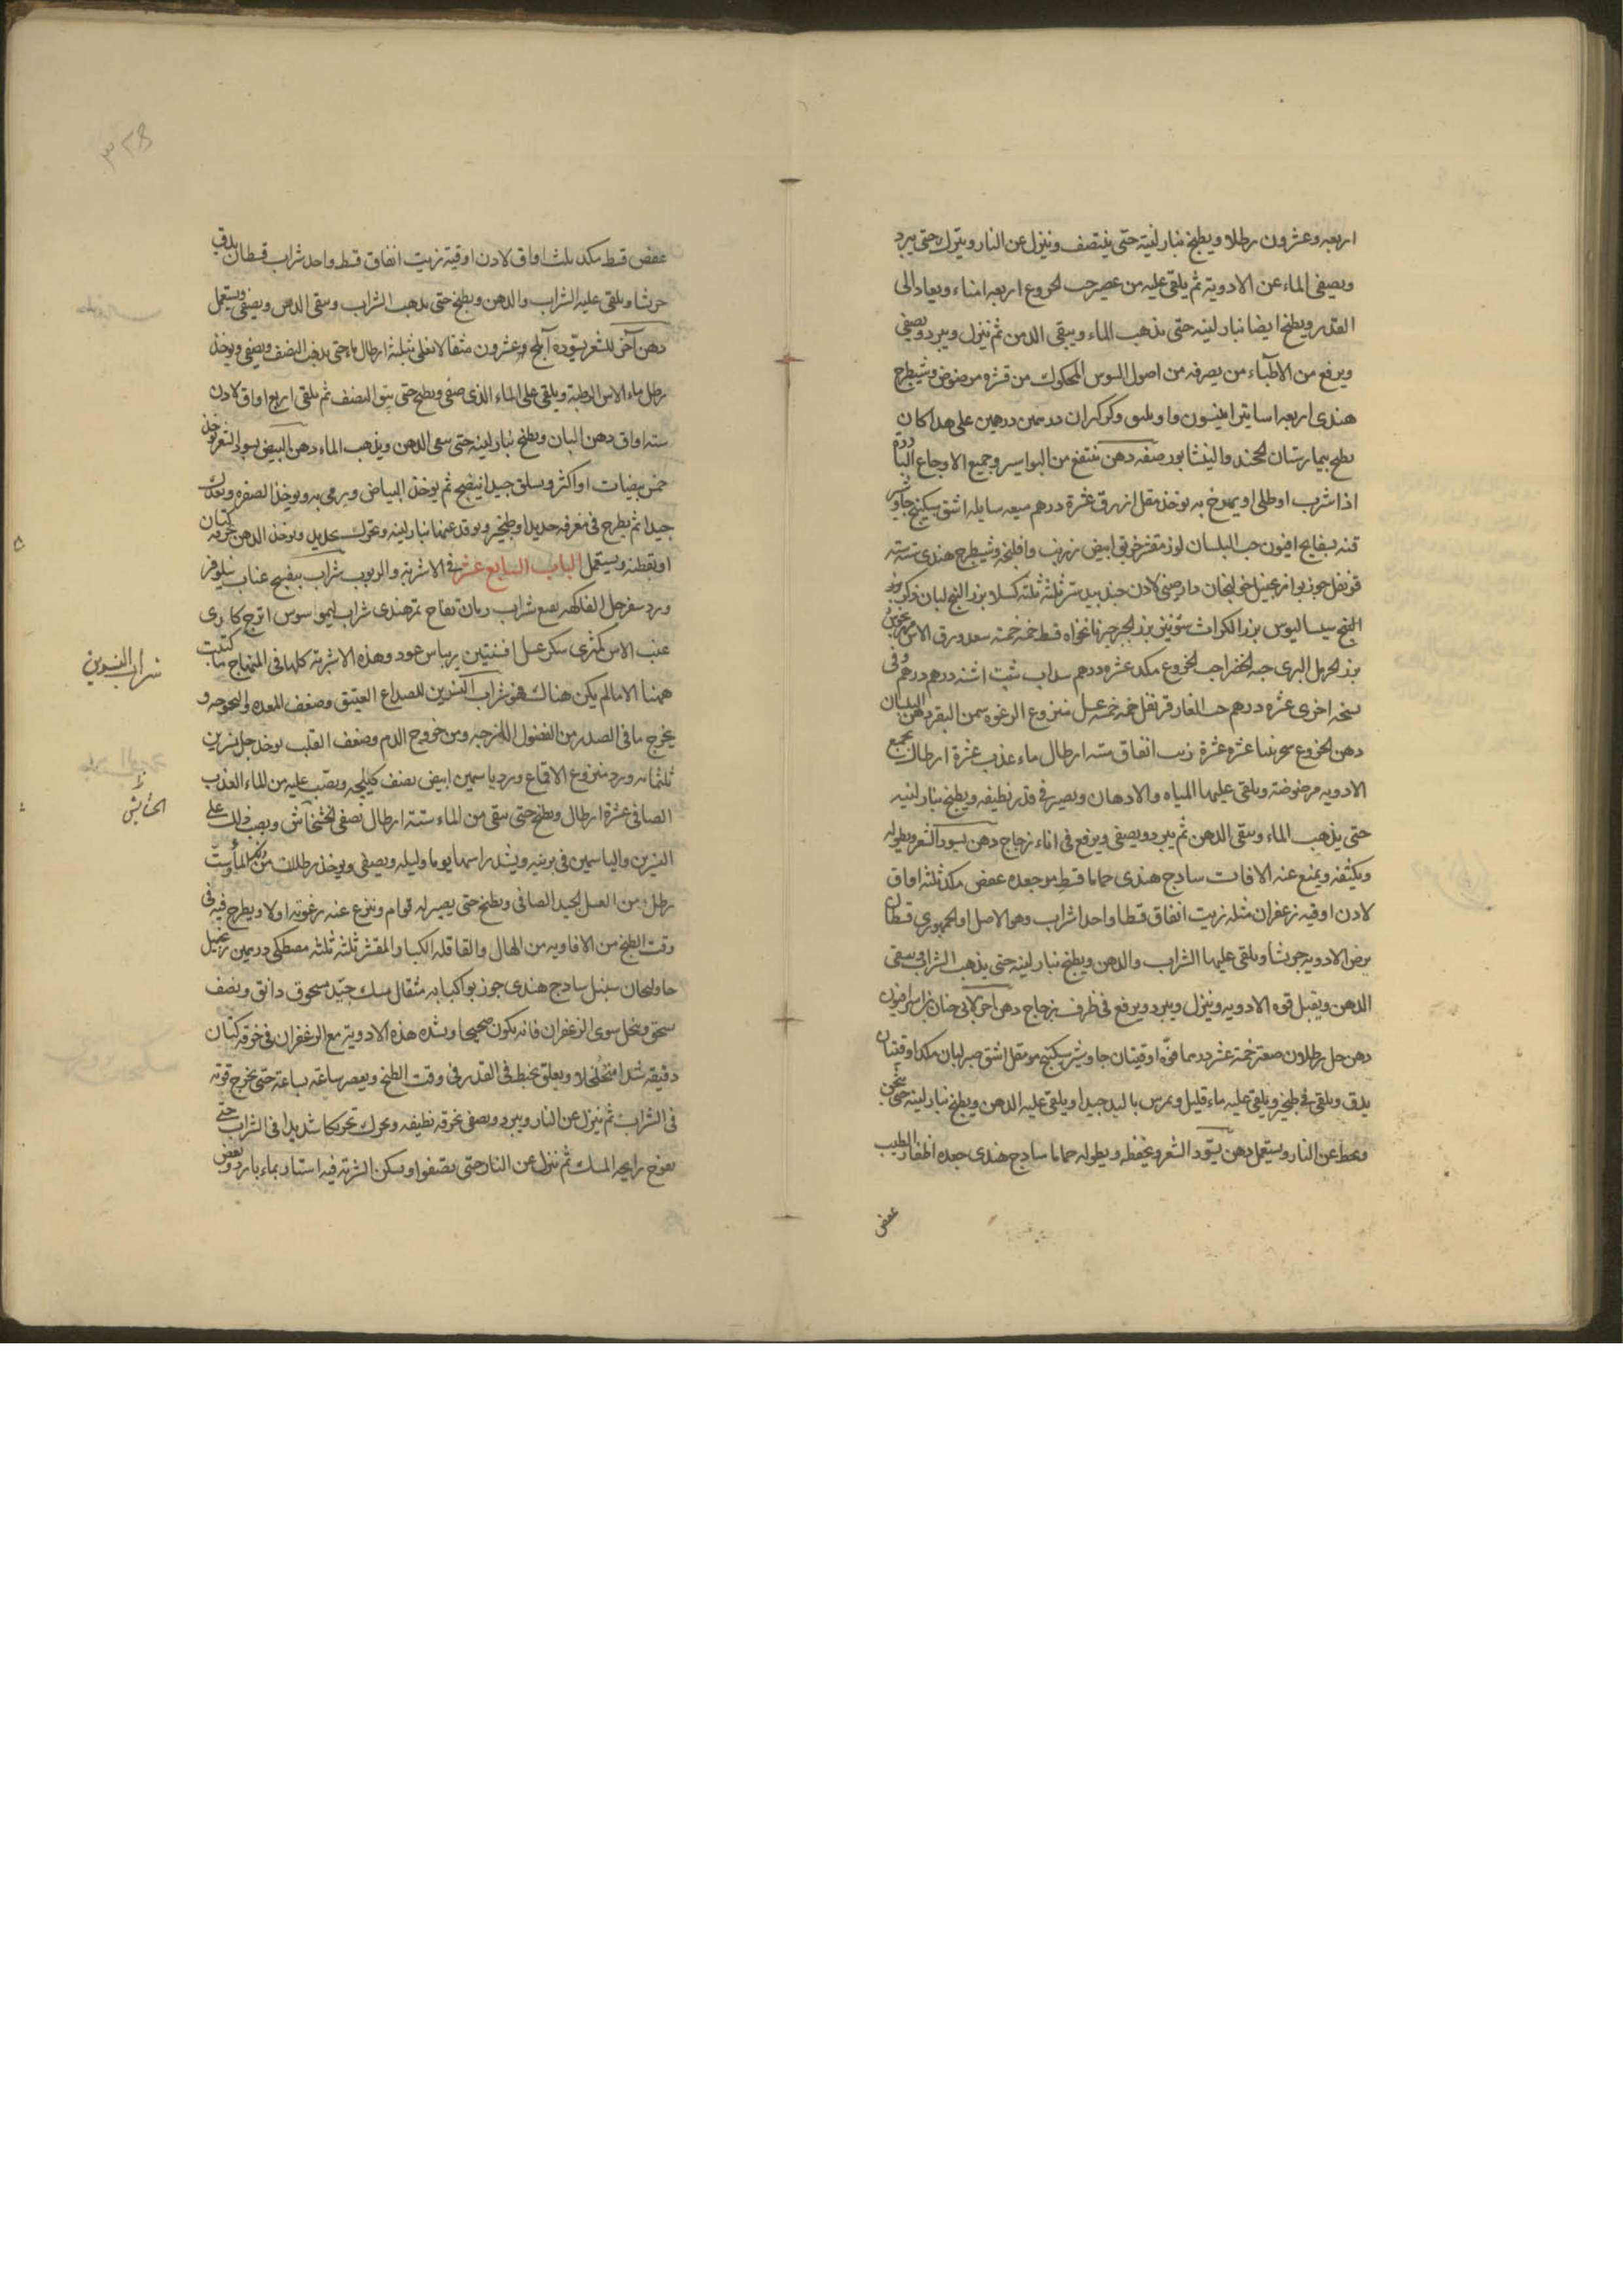 اربعه وعشرون رطلا ويطبخ بنار لينة حتى ينتصف وينزل عن النار ويترك حتى يبرد
ويصفى الماء عن الادوية ثم يلقى عليه من عصير حب الخروع اربعه امناء ويعاد الى
القدر ويطبخ ايضا بنار لينه حتى يذهب الماء ويبقى الدهن ثم ينزل ويبرد ويصفى
ويرفع من الاطباء من يصرفه من اصول السوس المحكوك من قشره مرضوض وشيطرج
هندى اربعه اساتير انيسون درهمين درهمين على هذا كان
يطبخ بيمارستان دهن ينتفع من البواسير وجميع الاوجاع الباردة
اذا شرب او طلى او يمرخ به يوخذ مقل ازرق عشرة درهم ميعه سايله اشق سكبينج جاوشير
قنه بسفايج افيون حب البلسان لوز مقشر خربق ابيض زرنب وافلنجه وشيطرج هندى سته سته
قرنفل جوزبوا زنجبيل خولنجان دارصينى لادن جندبيدستر ثلثة ثلثة بزر البنج لبان ذكر
سيساليوس بزر الكراث شونيز بزر الجرجير نانخواه قسط خمسه خمسه سعد ورق الاس
بزر الحرمل البرى حبه الخضرا حب الخروع مكد عشره درهم سداب شبت اشنه درهم درهم وفى
نسخه اخرى عشره درهم حب الغار قرنفل خمسه خمسه عسل منزوع الرغوه سمن البقر دهن البلسان
دهن الخروع عشره عشرة زيت انفاق سته ارطال ماء عذب عشرة ارطال تجمع
الادويه مرضوضة ويلقى عليها المياه والادهان ويصير فى قدر نظيفه ويطبخ بنار لينه
حتى يذهب الماء ويبقى الدهن ثم يبرد ويصفى ويرفع فى اناء زجاج دهن يسود الشعر ويطوله
ويكثفه ويمنع عنه الافات سادج هندى حماما قسط مر جعده عفص مكد ثلثه اواق
لادن اوقيه زعفران مثله زيت انفاق قسطا واحدا شراب وهو الاصل او الجمهورى قسطان
يرض الادويه جريشا ويلقى عليها الشراب والدهن ويطبخ بنار لينه حتى يذهب الشراب ويبقى
الدهن ويقبل قوه الادويه وينزل ويبرد ويرفع فى ظرف زجاج دهن اخر
دهن حل رطلان صعتر خمسة عشر درهما فوه اوقيتان جاوشير سكبينج مر مقل اشق صبر لبان مكد اوقيتان
يدق ويلقى فى طنجير ويلقى عليه ماء قليل ويمرس باليد جيدا ويلقى عليه الدهن ويطبخ بنار لينه حتى يثخن
ويحط عن النار ويستعمل دهن يسود الشعر ويحفظه ويطوله حماما سادج هندى جعده اظفار الطيب
عفص
٣٢٨
عفص قسط مكد ثلث اواق لادن اوقية زيت انفاق قسط واحد شراب قسطان يدق
جريشا ويلقى عليه الشراب والدهن ويطبخ حتى يذهب الشراب ويبقى الدهن ويصفى ويستعمل
دهن آخر للشعر يسوده آملج وعشرون مثقالا تغلى بثلثة ارطال ماء حتى يذهب النصف ويصفى ويوخذ
رطل ماء الاس الرطبة ويلقى على الماء الذى صفى ويطبخ حتى يبقى النصف ثم يلقى اربع اواق لادن
سته اواق دهن البان ويطبخ بنار لينه حتى يبقى الدهن ويذهب الماء دهن البيض يسود الشعر يوخذ
خمس بيضات او اكثر ويسلق جيدا لينضج ثم يوخذ البياض ويرمى به ويوخذ الصفره
جيدا ثم يطرح فى مغرفه حديد او طنجير ويوقد تحتها نار لينه ويحرك بحديد ويوخذ الدهن بخرقة كتان
او بقطنه ويستعمل الباب السابع عشر فى الاشربة والربوب شراب بنفسج عناب نيلوفر
ورد سفرجل الفاكهه نعنع شراب رمان تفاح تمرهندى شراب ليمو سوس اترج كادى
عنب الاس كمثرى سكر عسل افسنتين ريباس عود وهذه الاشربة كلها فى المنهاج ما كتبت
ههنا الا ما لم يكن هناك فهو شراب النسرين للصداع العتيق وضعف المعده
يخرج ما فى الصدر من الفضول اللزجه ومن خروج الدم وضعف القلب يوخذ جل نسرين
ثلثمائه ورد منزوع الاقماع ورد ياسمين ابيض نصف كيلجه ويصب عليه من الماء العذب
الصافى عشرة ارطال ويطبخ حتى يبقى من الماء ستة ارطال نصفى الخشخاش ويصب ذلك على
النسرين والياسمين فى برنيه ويشد راسها يوما وليله ويصفى ويوخذ رطلان من ذلك الماء وست
رطل من العسل الجيد الصافى ويطبخ حتى يصير له قوام وينزع عنه رغوته اولا ويطرح فيه فى
وقت الطبخ من الافاويه من الهال والقاقله الكبار المقشر ثلثة ثلثه مصطكى درهمين زنجبيل
خاولنجان سنبل سادج هندى جوزبوا كبابه مثقال مسك جيد مسحوق دانق ونصف
يسحق وينخل سوى الزعفران فانه يكون صحيحا ويشد هذه الادوية مع الزعفران فى خرقه كتان
دقيقه شدا متخلخلا ويعلق بخيط فى القدر فى وقت الطبخ ويعصر ساعة بساعة حتى يخرج قوته
فى الشراب ثم ينزل عن النار ويبرد ويصفى بخرقه نظيفه ويحرك تحريكا شديدا فى الشراب حتى
يفوح رايحه المسك ثم ينزل عن النار حتى يصفوا ويسكن الشربة فيه استار بماء بارد وبعض
شراب النسرين
الحشايش